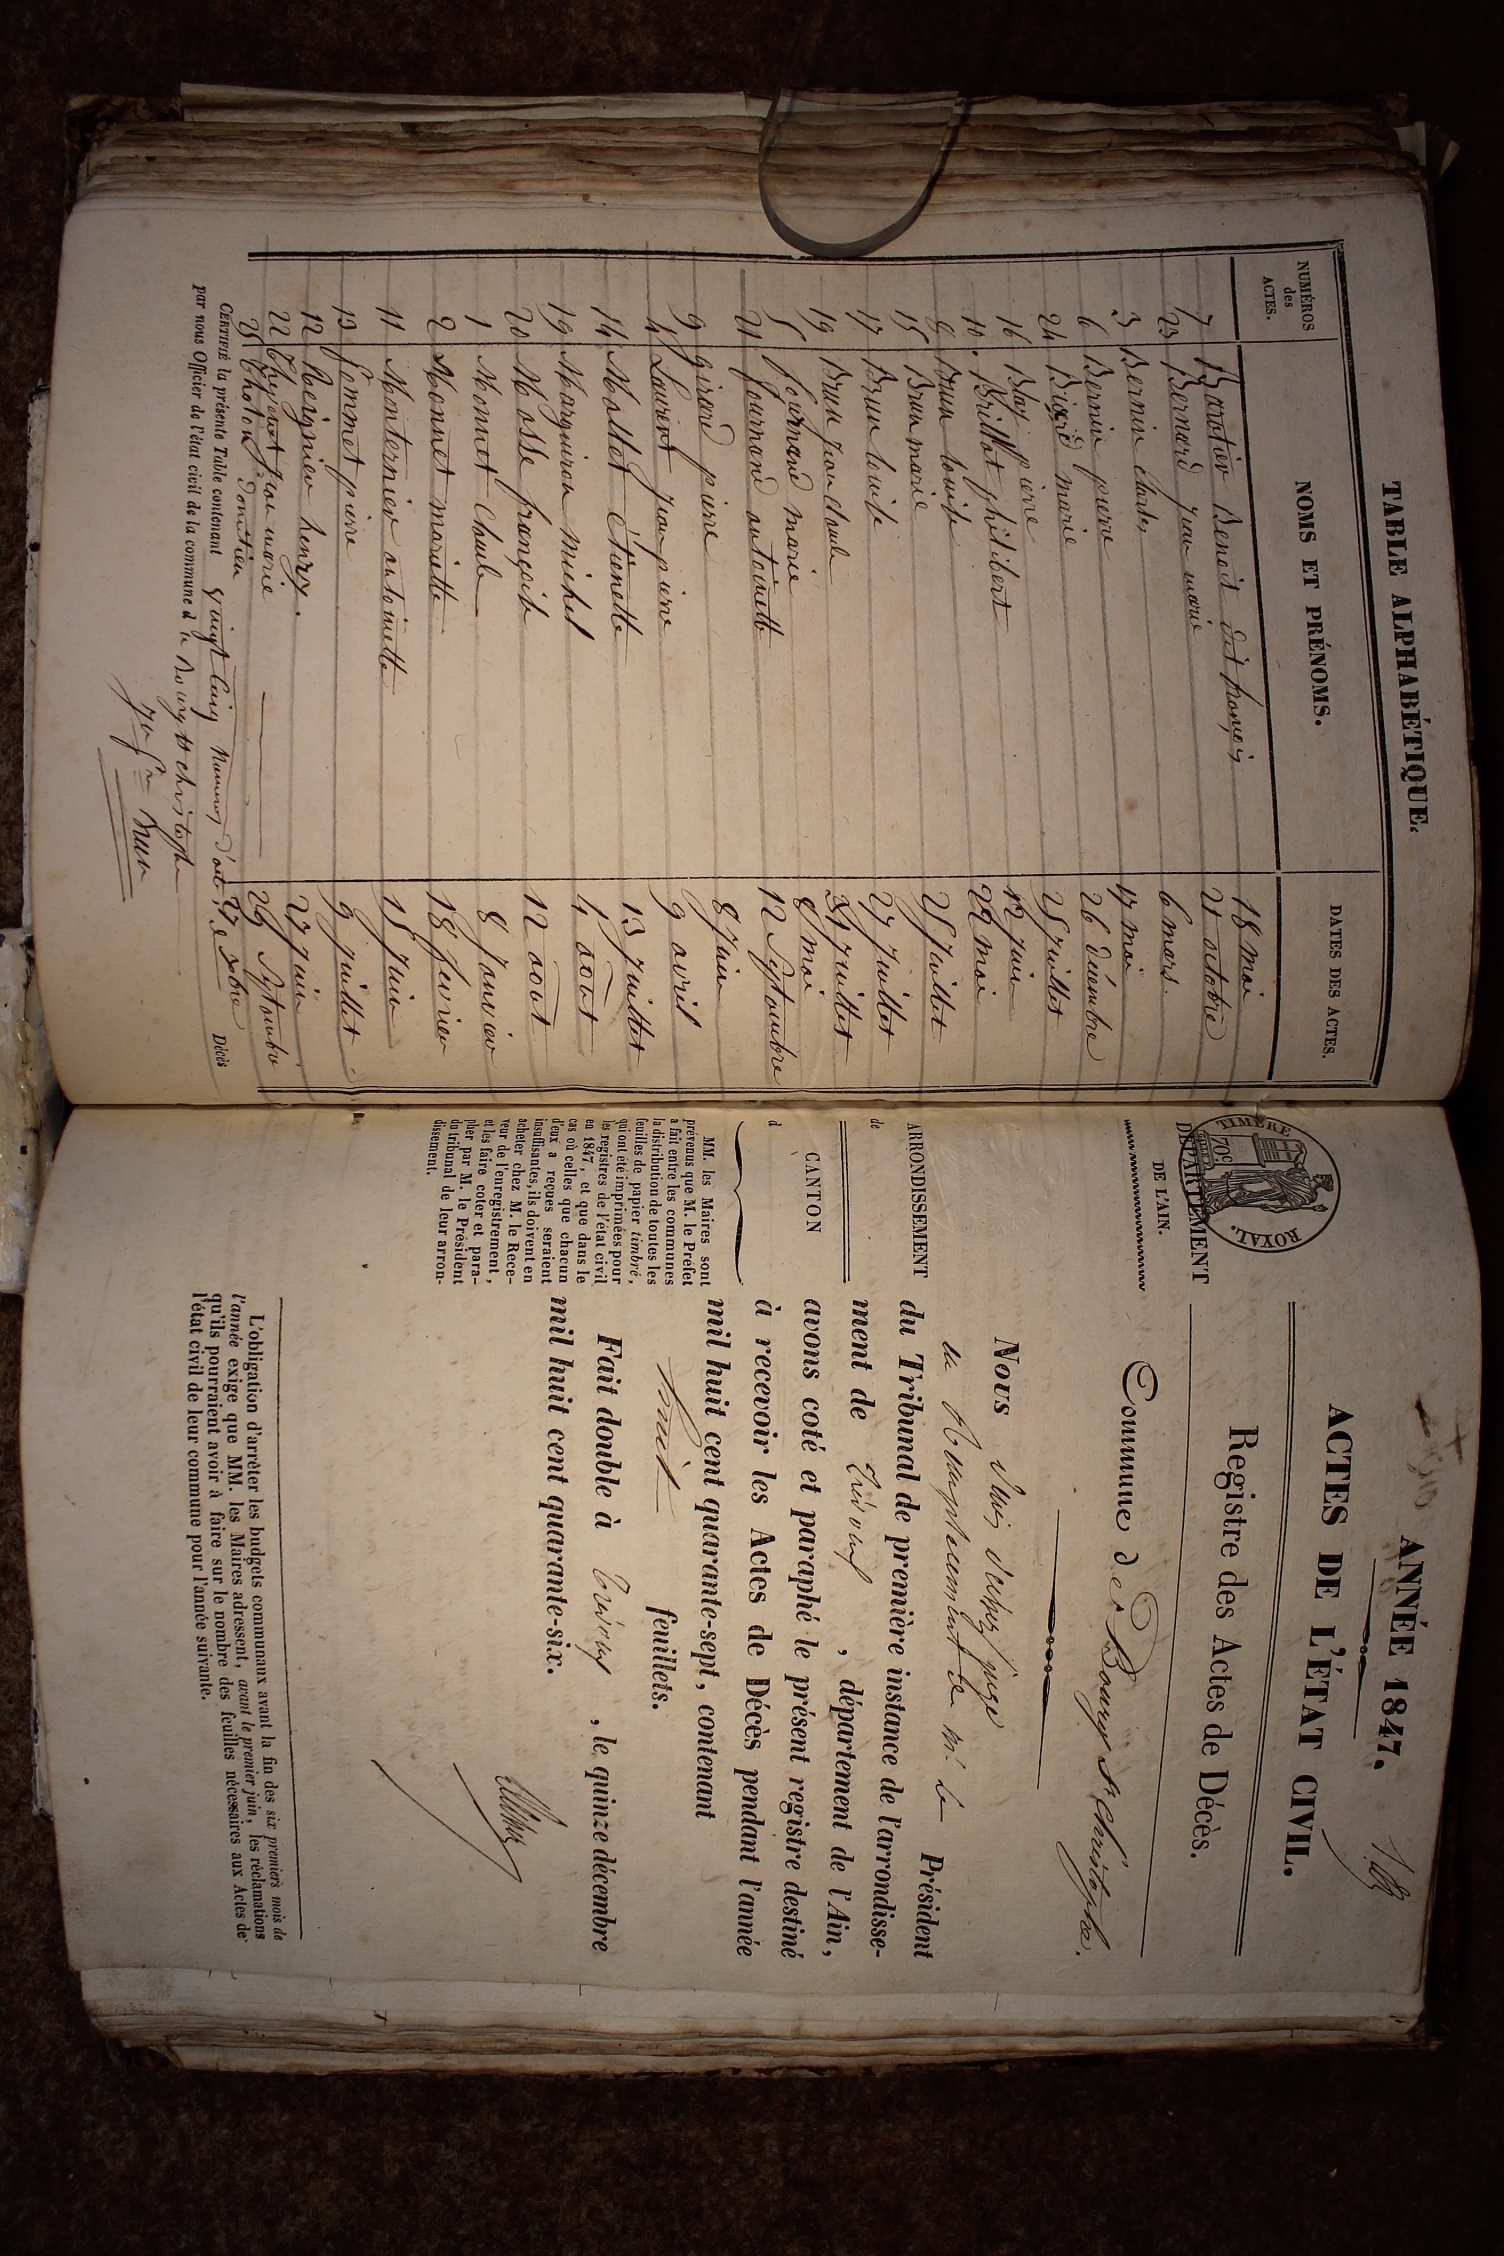 TABLE ALPHABÉTIQUE.
NUMÉROS des ACTES.
NOMS ET PRÉNOMS.
DATES DES ACTES.
7 Barratier Benoit dit françois 18 mai
23 Bernard jean marie 21 octobre
3 Bernin 6 mars
6 Bernin pierre 17 mai
24 marie 26 décembre
16 Blay pierre 25 juillet
10 Brillat philibert 12 juin
8 Brun louise 22 mai
15 Brun marie 25 juillet
17 Brun louise 27 juillet
19 Brun jean claude 31 juillet
5 fournand marie 8 mai
21 fournand antoinette 12 Septembre
9 girard pierre 8 juin
4 Laurent jean pierre 9 avril
14 Mallet étienette 13 juillet
19 Marguiron michel 4 aout
20 Masse françoise 12 aout
1 Monnet claude 8 janvier
2 Monnet mariette 18 fevrier
11 Monternier antoinette 15 juin
13 pommet pierre 9 juillet
12 Reignier henry. 27 juin
22 jean marie 29 Septembre
25 Tholon, domitien 27 Xbre
CERTIFIÉ la présente Table contenant vingt cinq Numeros d'actes de Décès
par nous Officier de l'état civil de la commune d de Bourg St christophe
Brun
ANNÉE 1847.
ACTES DE L'ÉTAT CIVIL.
TIMBRE ROYAL.
70c
DÉPARTEMENT
DE L'AIN.
Registre des Actes de Décès.
Commune de Bourg St Christophe.
ARRONDISSEMENT
de
CANTON
d
MM. les Maires sont
prévenus que M. le Préfet
a fait entre les communes
la distribution de toutes les
feuilles de papier timbré,
qui ont été imprimées pour
les registres de l'état civil
en 1847, et que dans le
cas où celles que chacun
d'eux a reçues seraient
insuffisantes, ils doivent en
acheter chez M. le Rece-
veur de l'enregistrement,
et les faire coter et para-
pher par M. le Président
du tribunal de leur arron-
dissement.
Nous juge
en Remplacement de M. le Président
du Tribunal de première instance de l'arrondisse-
ment de Trévoux, département de l'Ain,
avons coté et paraphé le présent registre destiné
à recevoir les Actes de Décès pendant l'année
mil huit cent quarante-sept, contenant
huit feuillets.
Fait double à Trévoux, le quinze décembre
mil huit cent quarante-six.
L'obligation d'arrêter les budgets communaux avant la fin des six premiers mois de
l'année exige que MM. les Maires adressent, avant le premier juin, les réclamations
qu'ils pourraient avoir à faire sur le nombre des feuilles nécessaires aux Actes de
l'état civil de leur commune pour l'année suivante.